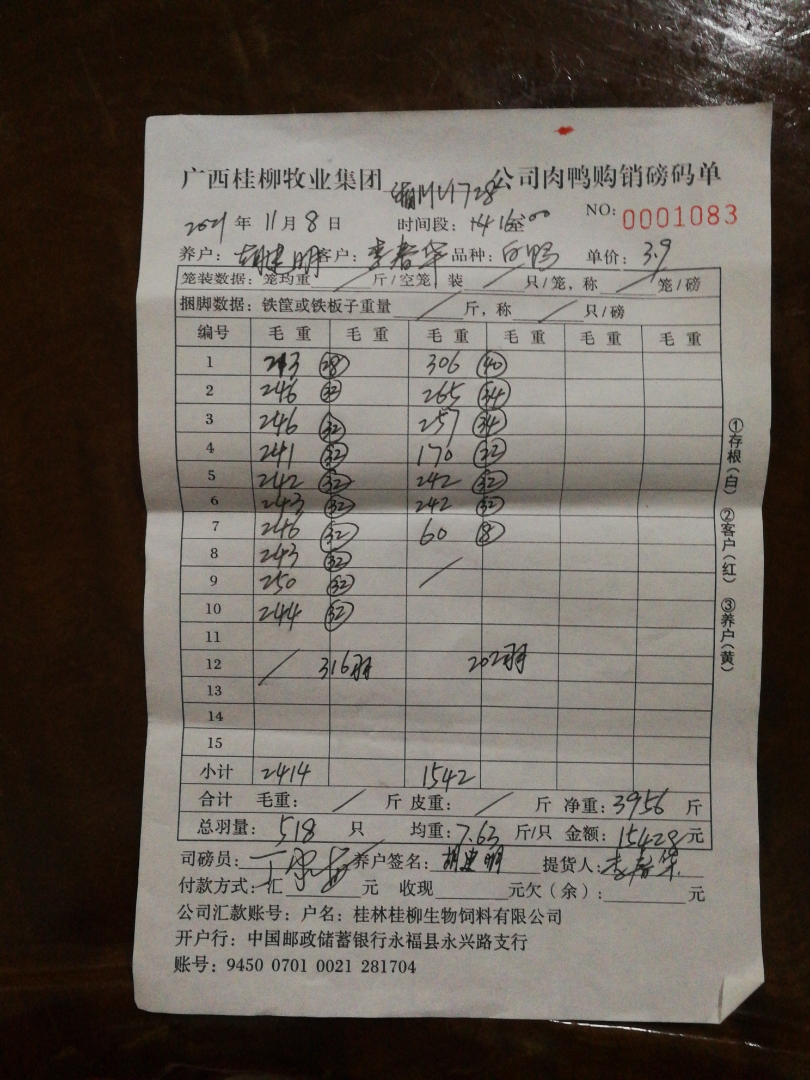 广西桂柳牧业集团 公司肉鸭购销磅码单
NO: 0001083
2021 年 11 月 8 日 时间段:
养户: 胡建明 客户: 李春华 品种: 白鸭 单价: 3.9
笼装数据: 笼均重 / 斤/空笼 装 / 只/笼, 称 / 笼/磅
捆脚数据: 铁筐或铁板子重量 / 斤, 称 / 只/磅
编号 毛重 毛重 毛重 毛重 毛重 毛重
1 243 28 306 40
2 246 32 265 34
3 246 32 257 34
4 241 32 170 22
5 242 32 242 32
6 243 32 242 32
7 246 32 60 8
8 243 32 /
9 250 32
10 244 32
11
12 / 316羽 202羽
13
14
15
小计 2414 1542
合计 毛重: / 斤 皮重: / 斤 净重: 3956 斤
总羽量: 518 只 均重: 7.63 斤/只 金额: 15428 元
司磅员: 养户签名: 胡建明 提货人: 李春华
付款方式: 汇 元 收现 元 欠(余): 元
公司汇款账号: 户名: 桂林桂柳生物饲料有限公司
开户行: 中国邮政储蓄银行永福县永兴路支行
账号: 9450 0701 0021 281704
①存根(白) ②客户(红) ③养户(黄)